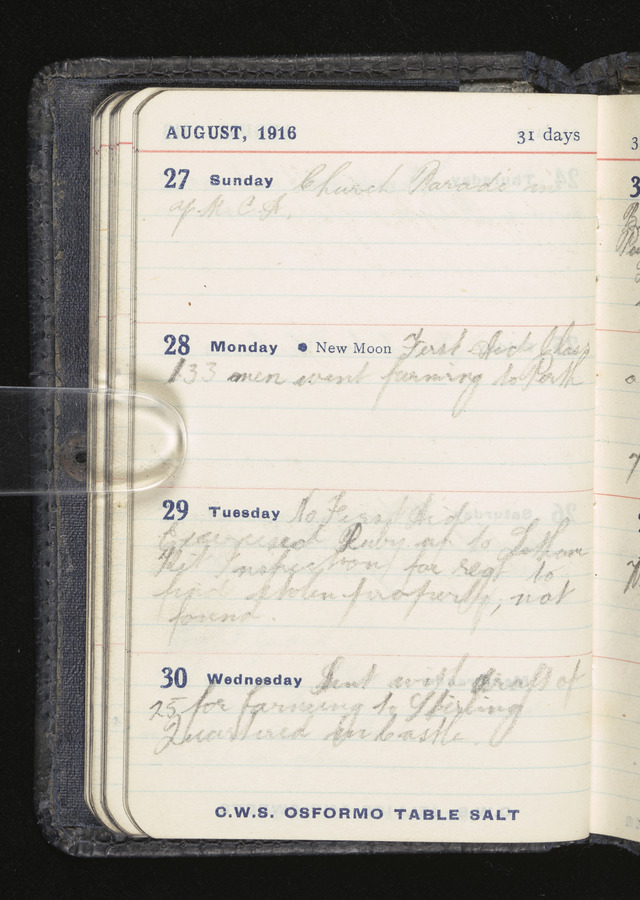 AUGUST, 1916 31 days
27 Sunday Church Parade in
Y.M.C.A.
28 Monday ● New Moon First Aid Class
133 men went farming to Perth
29 Tuesday No First Aid
Exercised Ruby up to
Kit Inspection for regt to
find stolen property, not
found.
30 Wednesday Sent with draft of
25 for farming to Stirling
Quartered in Castle.
C.W.S. OSFORMO TABLE SALT